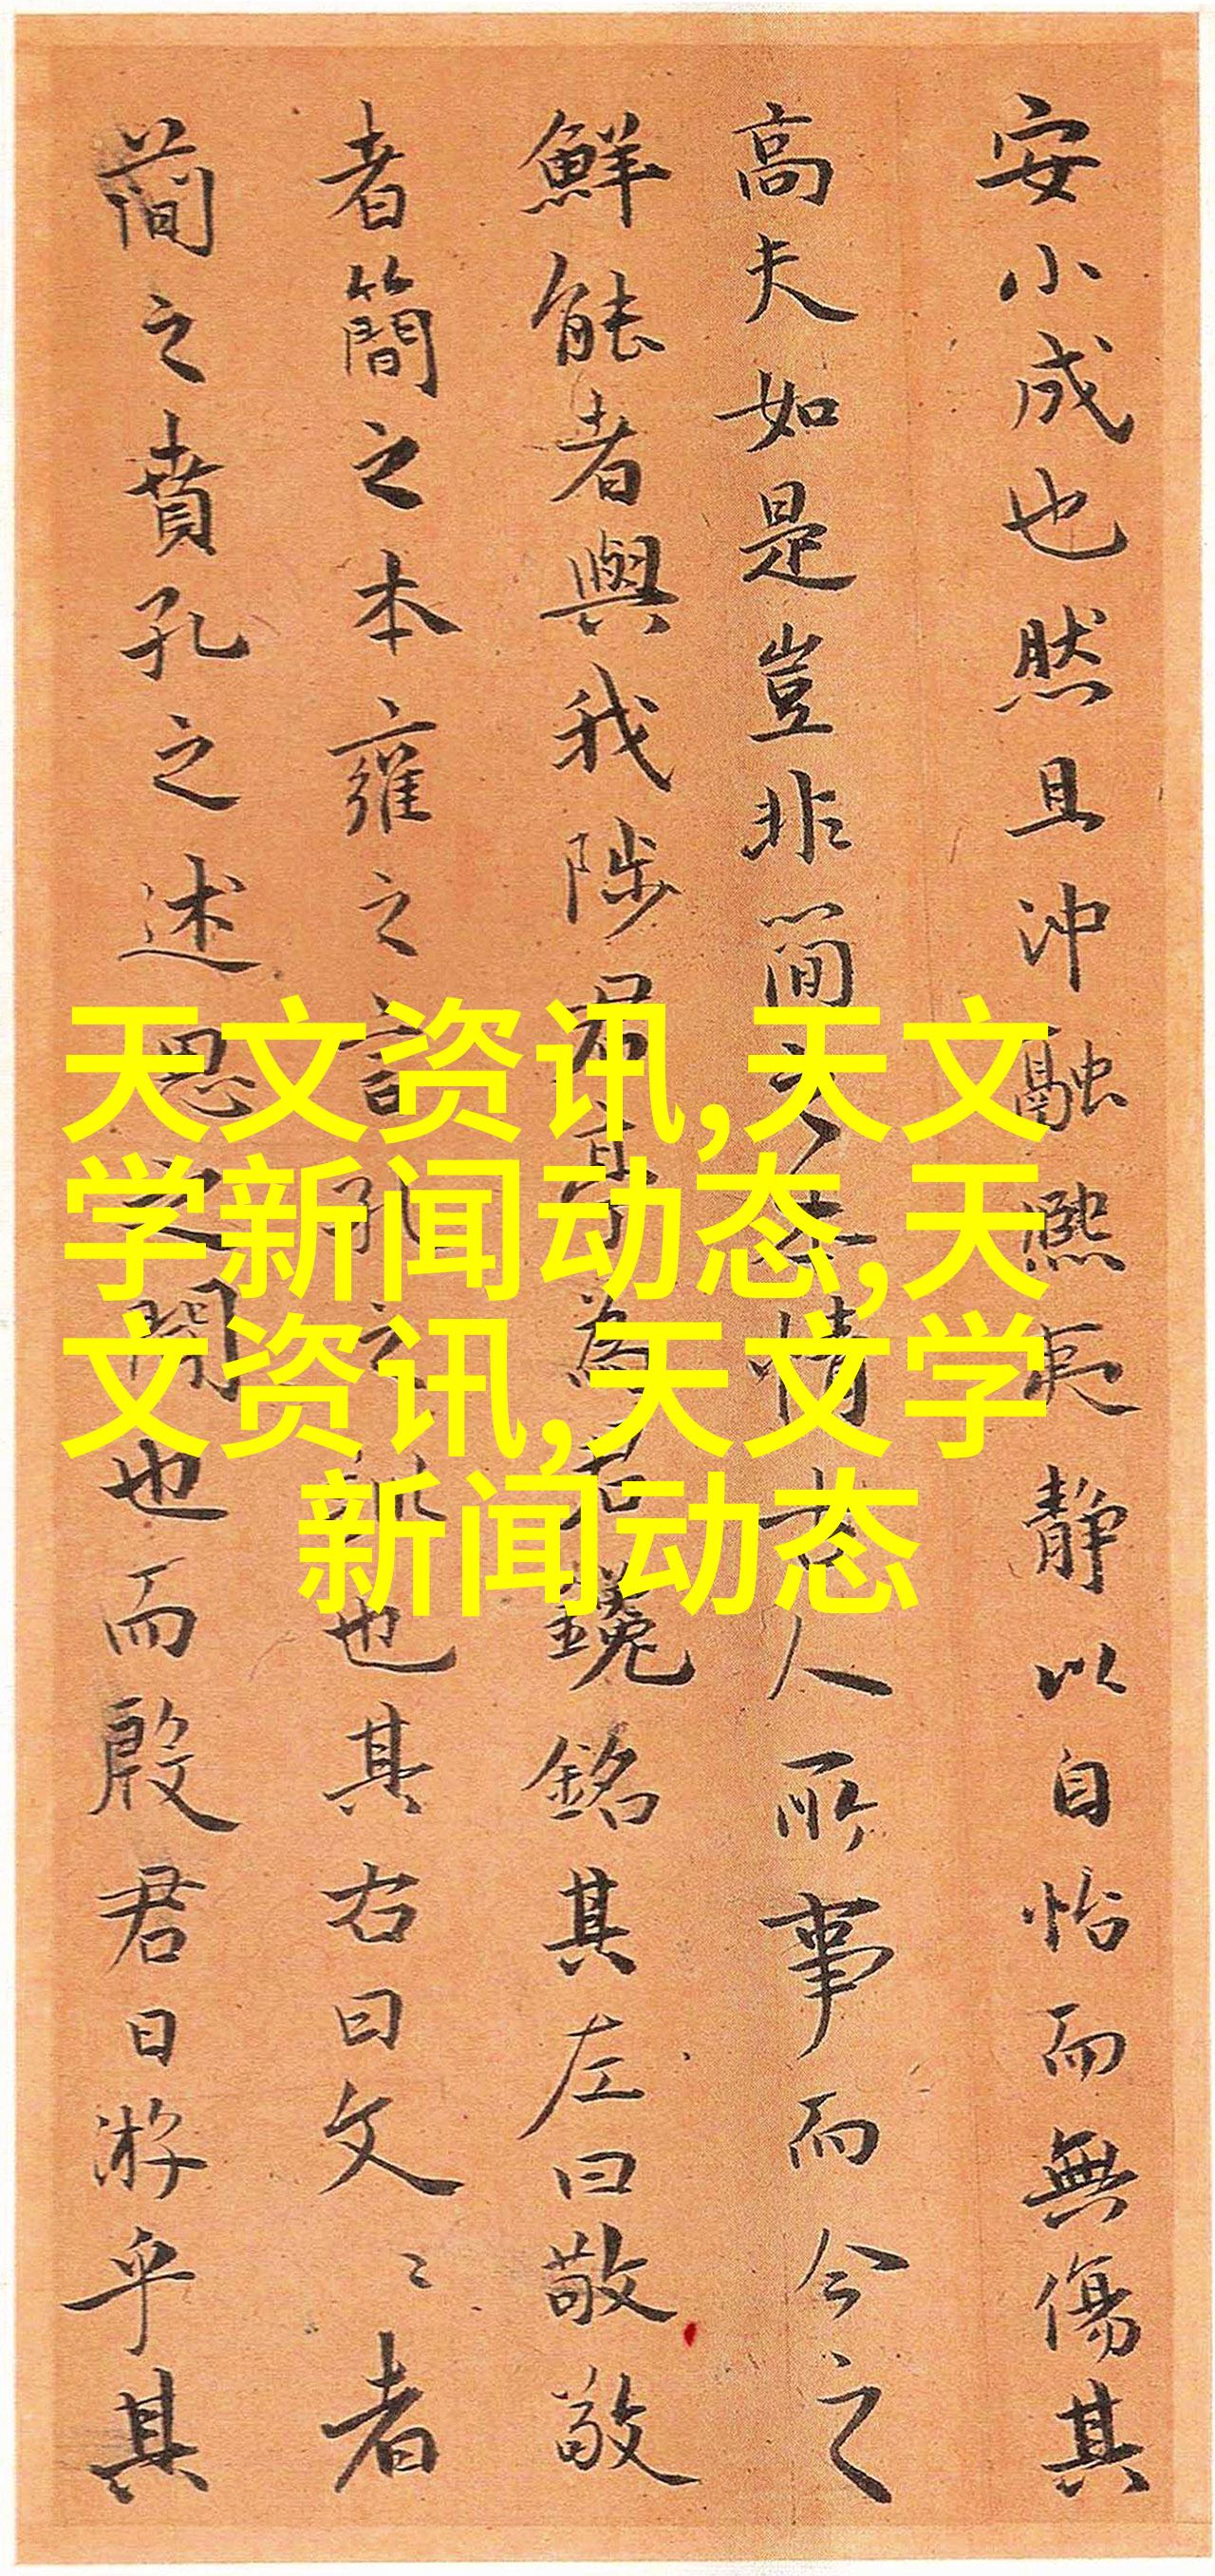 安小成也然且沖融熙夷静以自怡而無傷其
高夫如是豈非簡之本情古人所事而今之
鮮能者與我陟君宜為君鑱銘其左曰敬敬
者簡之本雍之言孔之訓也其右曰文〻者
簡之賁孔之述思之閒也而殷君日游乎其
天文资讯,天文
学新闻动态,天
文资讯,天文学
新闻动态